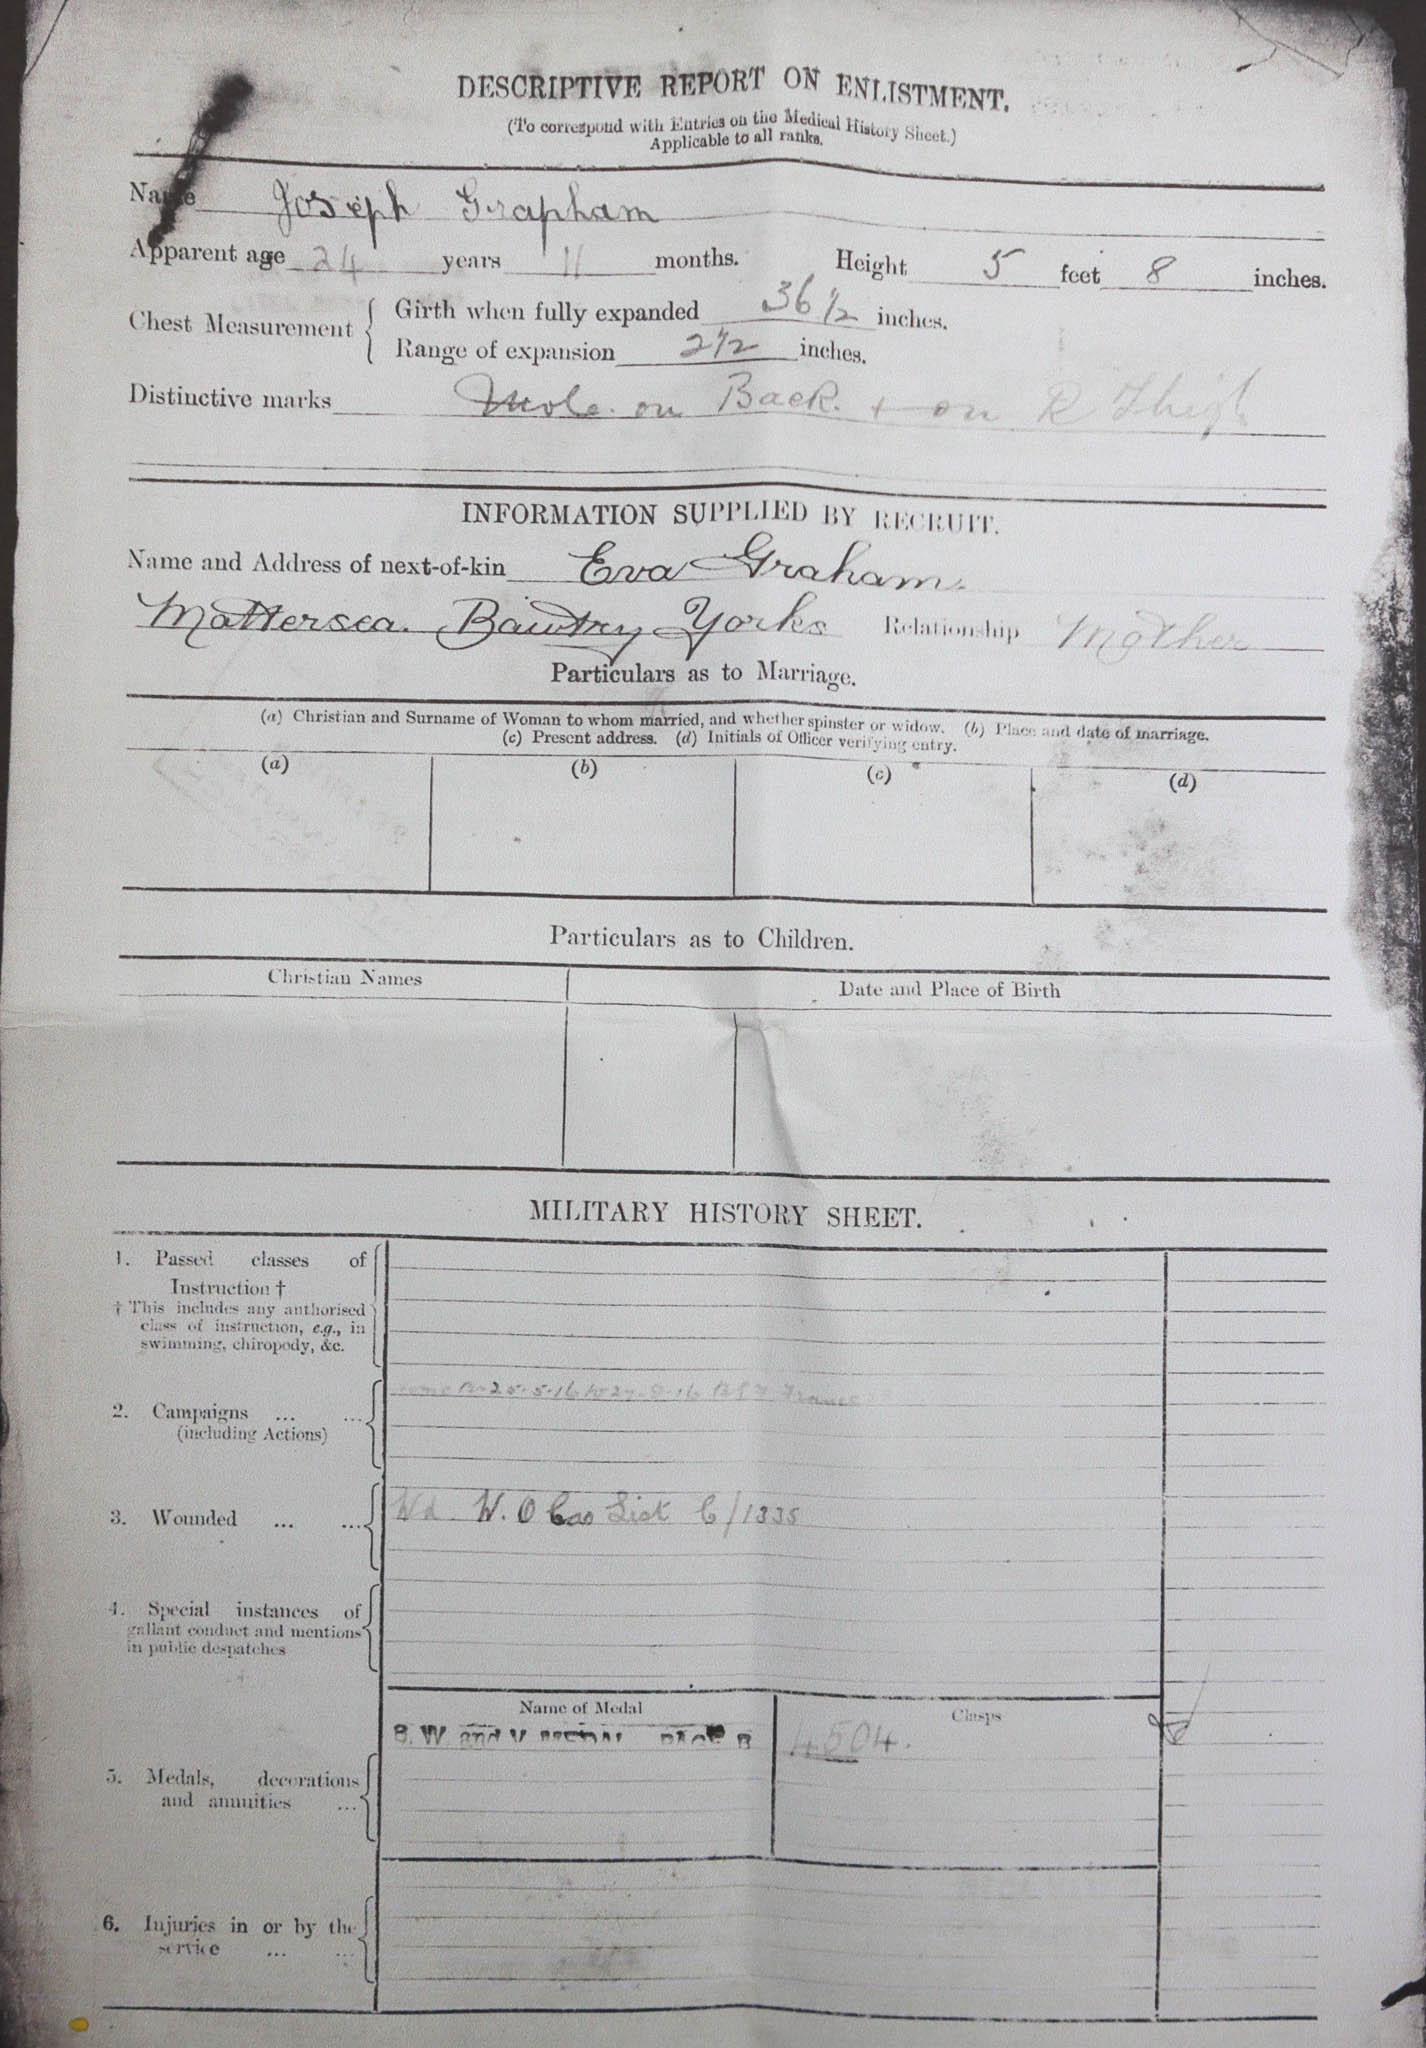 DESCRIPTIVE REPORT ON ENLISTMENT.
(To correspond with Entries on the Medical History Sheet.)
Applicable to all ranks.
Name Joseph Grapham
Apparent age 24 years 11 months. Height 5 feet 8 inches.
Chest Measurement { Girth when fully expanded 36 1/2 inches.
Range of expansion 2 1/2 inches.
Distinctive marks Mole on Back. + on R Thigh
INFORMATION SUPPLIED BY RECRUIT.
Name and Address of next-of-kin Eva Graham.
Mattersea. Bawtry Yorks Relationship Mother
Particulars as to Marriage.
(a) Christian and Surname of Woman to whom married, and whether spinster or widow. (b) Place and date of marriage.
(c) Present address. (d) Initials of Officer verifying entry.
(a) (b) (c) (d)
Particulars as to Children.
Christian Names Date and Place of Birth
MILITARY HISTORY SHEET.
1. Passed classes of
Instruction †
† This includes any authorised
class of instruction, e.g., in
swimming, chiropody, &c.
25-5-16 to 27-8-16 France
2. Campaigns ... ...
(including Actions)
3. Wounded ... ... Wd W. O Cas List C/1335
4. Special instances of
gallant conduct and mentions
in public despatches
Name of Medal Clasps
B. W. and V MEDAL PAGE B 4504.
5. Medals, decorations
and annuities ...
6. Injuries in or by the
service ... ...